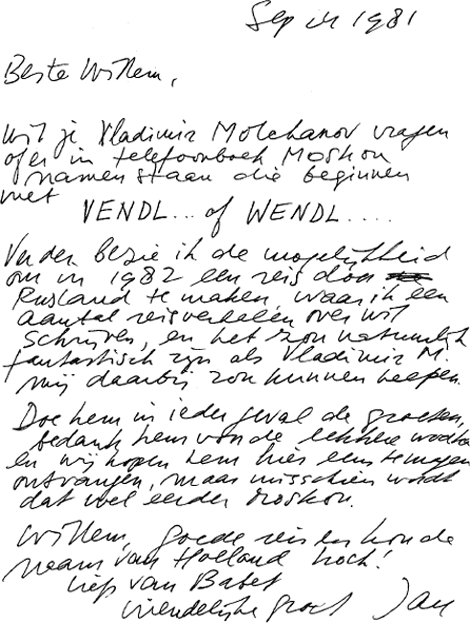 Sep 1981
Beste Willem,
Wil je Vladimir Molchanov vragen
of er in telefoonboek Moskou
namen staan die beginnen
met
VENDL... of WENDL.....
Verder bezie ik de mogelijkheid
om in 1982 een reis door
Rusland te maken, waar ik een
aantal reisverhalen over wil
schrijven, en het zou natuurlijk
fantastisch zijn als Vladimir M.
mij daarbij zou kunnen helpen.
Doe hem in ieder geval de groeten,
bedank hem voor de lekkere wodka
en wij hopen hem hier eens te mogen
ontvangen, maar misschien wordt
dat wel eerder Moskou.
Willem, goede reis en hou de
naam van Holland hoch!
Liefs van Babet
vriendelijke groet Jan